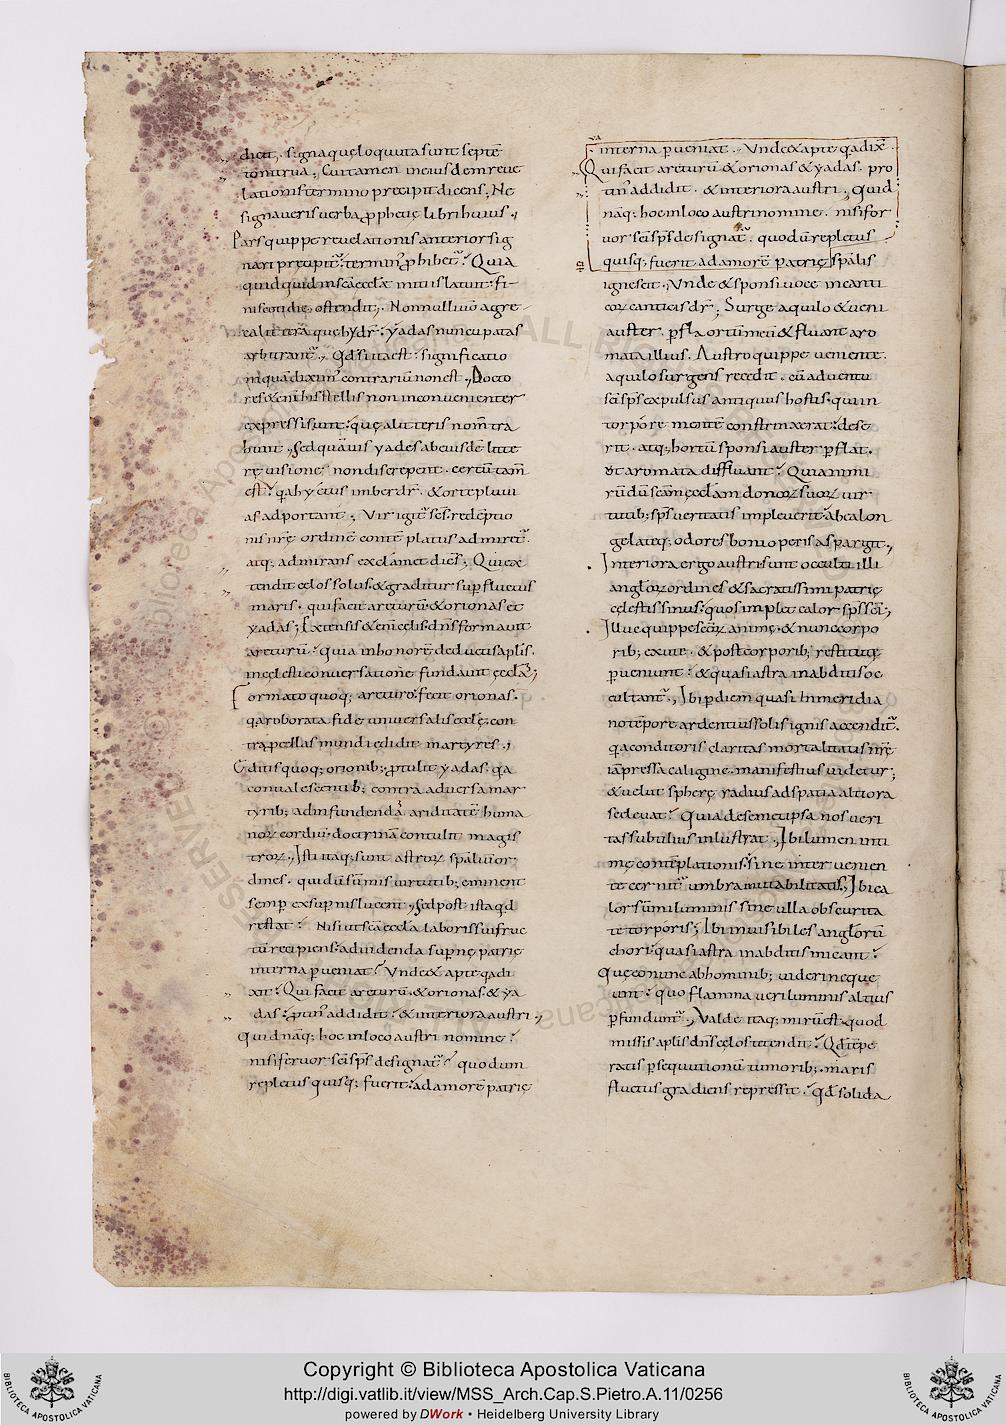 dicit; signa quę locuta sunt septē
tonitrua; Cui tamen in eiusdem reue
lationis termino precipit dicens; Ne
signaueris uerba prophetię libri huius;
Pars quippe reuelationis anterior sig
nari precipit'. termin' phibet'; Quia
quidquid in scā ęcclā initiis latuit. fi
nis cotidie ostendit; Nonnulli uō a gre
ca littera que hy dr̄. yadas nuncupatas
arbitrant'; Qd si ita est. significatio
Docto
res & enī his stellis non inconuenienter
expressi sunt. quę a litteris nom̄ tra
hunt; Sed quāuis yades ab eiusdē litte
rę uisione; non discrepent. certū tam̄
est. qa hyetus imber dr̄. & ortę pluui
as adportant; Vir igit' scs redēptio
nis nrę ordinē contēplatus admiret'.
atq; admirans exclamet dicēs; Qui ex
tendit cęlos solus. & graditur sup fluctus
maris. qui facit arcturū. & orionas et
yadas; Extensis & enī cęlis. dn̄s formauit
arcturū. quia in honorē deductis aplīs.
in cęlesti conuersatione fundauit ęcclā;
Formato quoq; arcturo. fecit orionas.
qa roborata fide uniuersalis ecclę. con
tra pcellas mundi edidit martyres;
Editis quoq; orionib; ptulit yadas. qa
conualescentib; contra aduersa mar
tyrib; ad infundendā ariditatē huma
norꝝ cordiū. doctrinā contulit magis
trorꝝ; Isti itaq; sunt astrorꝝ spālium or
dines. qui dū sūmis uirtutib; eminent
semp ex supnis lucent; Sed post ista qd
restat? Nisi ut scā ecclā laboris sui fruc
tū recipiens. ad uidenda supnę patrię
interna pueniat? Vnde & apte qa di
xit. Qui facit arcturū. & orionas. & ya
das. ptin' addidit. & interiora austri;
Quid nāq; hoc in loco austri nomine.
nisi feruor scī sps designat'? quo dum
repletus quisq; fuerit. ad amorē patrię
va
interna pueniat. Vnde & apte qa dix̄.
Qui facit arcturū & orionas & yadas. pro
tin' addidit. & interiora austri; Quid
nāq; hoc in loco austri nomine. nisi fer
uor scī sps designat'. quo dū repletus
quisq; fuerit ad amorē patrię spālis
ignescit. Vnde & sponsi uoce in canti
corꝝ canticis dr̄; Surge aquilo & ueni
auster. pfla ortū meū & fluant aro
mata illius. Austro quippe ueniente.
aquilo surgens recedit. cū aduentu
scī sps expulsus antiquus hostis. qui in
torpore mentē constrinxerat. dese
rit. atq; hortū sponsi auster pflat.
ut aromata diffluant. Quia nimi
rū dū scām ęcclam donorꝝ suorꝝ uir
tutib; sps ueritatis impleuerit. ab ea lon
ge lateq; odores boni operis aspargit;
Interiora ergo austri sunt occulti illi
anglorꝝ ordines & sacratissimi patrię
cęlestis sinus. quos implet calor sps scī;
Illuc quippe scōrꝝ animę. & nunc corpo
rib; exutę. & post corporib; restitutę
pueniunt. & quasi astra in abditis oc
cultant'; Ibi p diem quasi in meridia
no tēpore ardentius solis ignis accendit'.
qa conditoris claritas mortalitatis nrę
iā pressa caligine. manifestius uidetur;
& uelut spherę radius ad spatia altiora
se leuat. Quia de semetipsa nos ueri
tas subtilius inlustrat; Ibi lumen inti
mę contēplationis. sine interuenien
te cernit' umbra mutabilitatis; Ibi ca
lor sūmi luminis sine ulla obscurita
te corporis; Ibi inuisibiles anglorū
chori quasi astra in abditis micant.
Quę eo nunc ab hominib; uideri neque
unt. quo flamma ueri luminis altius
pfundunt'; Valde itaq; mirū est. quod
missis aplis dn̄s cęlos tetendit. Qd tēpe
ratis psequutionū tumorib;. maris
fluctus gradiens repressit. Qd solida
Copyright © Biblioteca Apostolica Vaticana
http://digi.vatlib.it/view/MSS_Arch.Cap.S.Pietro.A.11/0256
powered by DWork • Heidelberg University Library